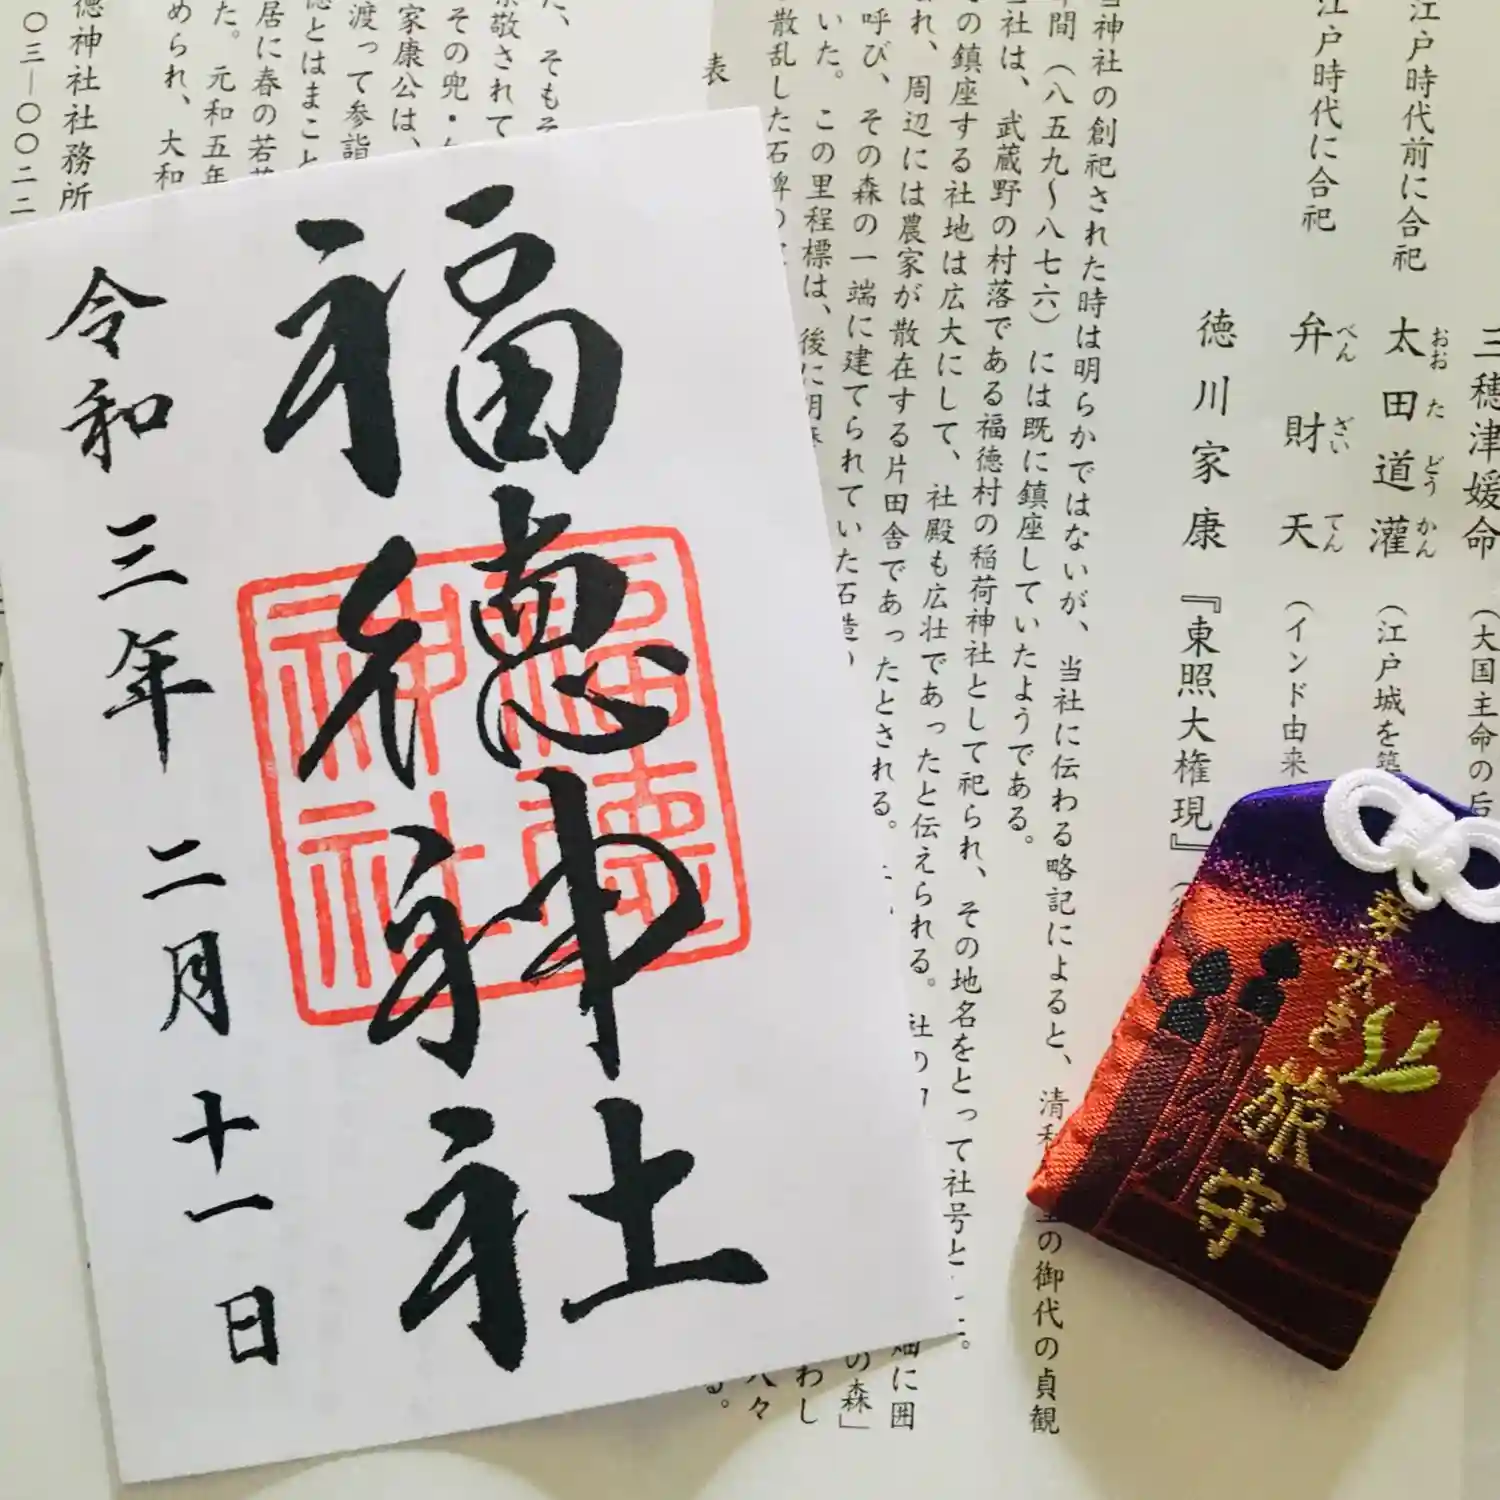 福徳神社
令和三年二月十一日
福徳
神社
芽吹き
守
三穂津媛命
(大国主命の后
江戸時代前に合祀
太田道灌
おおたどうかん
(江戸城を築
江戸時代に合祀
弁財天
べんざいてん
(インド由来
徳川家康
『東照大権現』
当神社の創祀された時は明らかではないが、当社に伝わる略記によると、清和
の御代の貞観
年間(八五九〜八七六)には既に鎮座していたようである。
当社は、武蔵野の村落である福徳村の稲荷神社として祀られ、その地名をとって社号と
その鎮座する社地は広大にして、社殿も広壮であったと伝えられる。
畑に囲
まれ、周辺には農家が散在する片田舎であったとされる。
の森」
呼び、その森の一端に建てられていた石造り
わし
いた。この里程標は、後に
人々
散乱した石碑の
る。
表
た、そもそ
崇敬されて
その兜・
家康公は、
渡って参詣
徳とはまこと
居に春の若
た。元和五年
められ、大和
徳神社社務所
〇三―〇〇二二